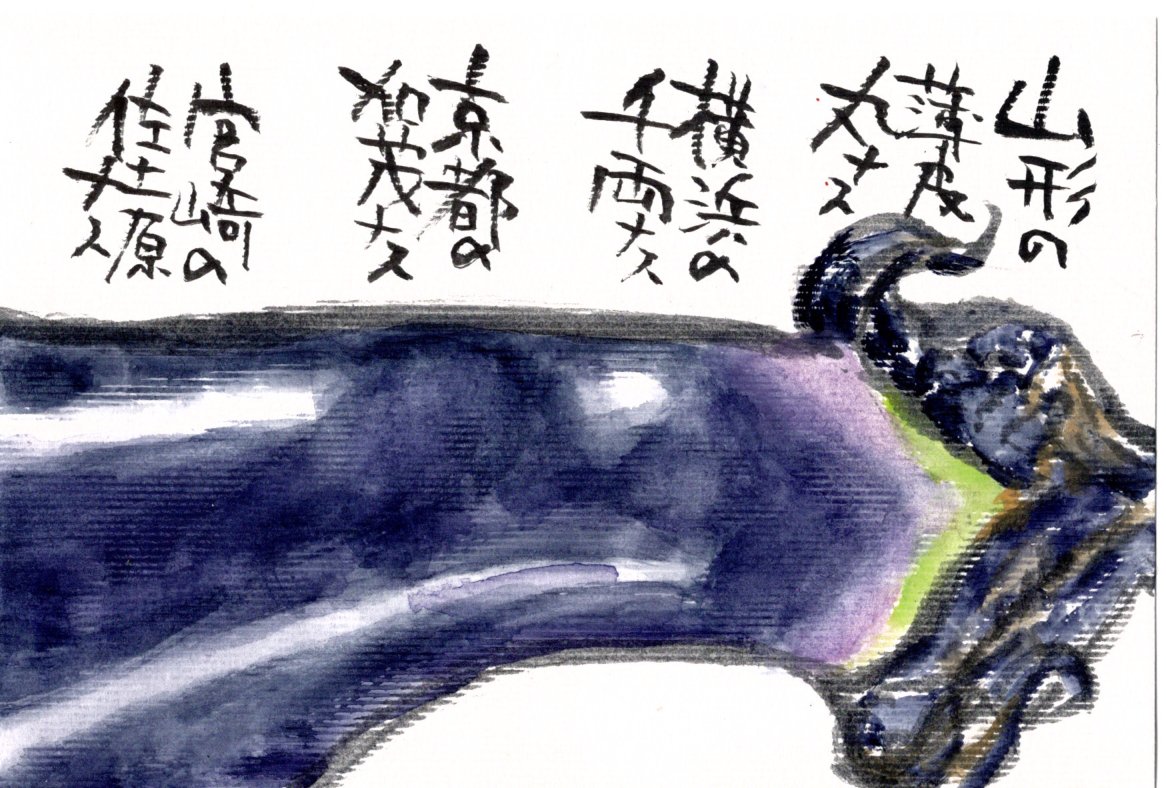 山形の
薄皮
丸ナス
横浜の
千両ナス
京都の
加茂ナス
宮崎の
佐土原
ナス